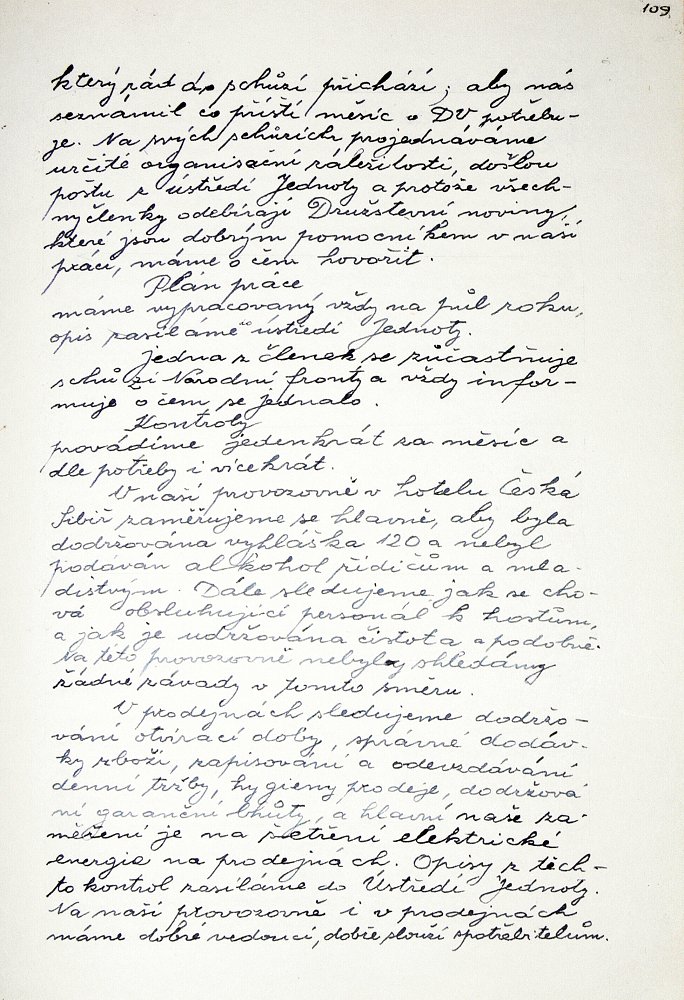 109
který rád do schůzí přichází, aby nás
seznámil co příští měsíc o DV potřebu-
je. Na svých schůzích, projednáváme
určité organisační záležitosti, došlou
poštu z ústředí Jednoty a protože všech-
ny členky odebírají Družstevní noviny,
které jsou dobrým pomocníkem v naší
práci, máme o čem hovořit.
Plán práce
máme vypracovaný vždy na půl roku,
opis zasíláme ústředí Jednoty.
Jedna z členek se zůčastňuje
schůzí Národní fronty a vždy infor-
muje o čem se jednalo.
Kontroly
provádíme jedenkrát za měsíc a
dle potřeby i vícekrát.
V naší provozovně v hotelu Česká
Sibiř zaměřujeme se hlavně, aby byla
dodržována vyhláška 120 a nebyl
podáván alkohol řidičům a mla-
distvým. Dále sledujeme jak se cho-
vá obsluhující personál k hostům,
a jak je udržována čistota a podobně.
Na této provozovně nebyly shledány
žádné závady v tomto směru.
V prodejnách sledujeme dodržo-
vání otvírací doby, správné dodáv-
ky zboží, zapisování a odevzdávání
denní tržby, hygieny prodeje, dodržová
ní garanční lhůty, a hlavní naše za-
měření je na šetření elektrické
energie na prodejnách. Opisy z těch-
to kontrol zasíláme do Ústředí Jednoty.
Na naší provozovně i v prodejnách
máme dobré vedoucí, dobře slouží spotřebitelům.